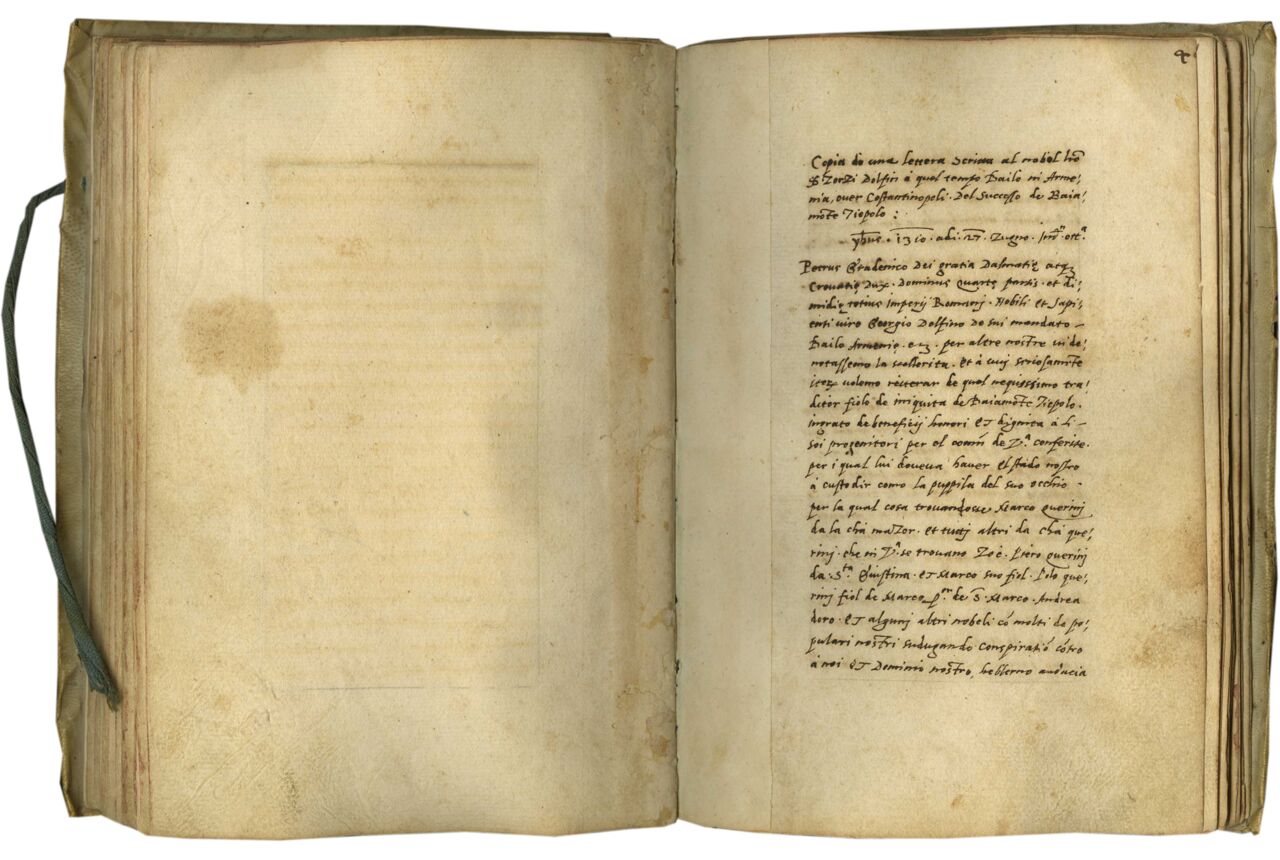 Copia de una lettera scritta al nobel hõ
Zorzi Dolfin à quel tempo Bailo in Arme,
nia, over Costantinopoli. Del successo de Baia,
mõte Tiepolo:
1310. adi. 27. Zugno. Ind.ⁿ ott.ª
Petrus Gradenico Dei gratia Dalmatię atq;
Crovatię Dux. Dominus quartę partis. et di,
midię totius Imperij Romanj. Nobili et sapi,
enti viro Georgio Dolfino de sui mandato -
Bailo Armenię. per altre nostre vi de,
notassemo la scellerita. et à vuj seriosamẽte
volemo reiterar de quel nequissimo tra,
ditor fiolo de iniquita de Baiamõte Tiepolo.
ingrato de beneficij honori et dignita à li -
soi progenitori per el comũ de V.ª conferite.
per i qual lui doveva haver el stado nostro
à custodir como la puppila del suo occhio -
per la qual cosa trovandose Marco querinj
da la chà mazor. et tuttj altri da chà que,
rinj. che in V.ª se trovano Zoè. Piero querinj
da. S.ᵗᵃ Giustina. et Marco suo fiol. Polo que,
rinj fiol de Marco de S. Marco. Andrea
doro. et algunj altri nobeli cõ molti de po,
pulari nostri sudugando conspiratiõ cõtro
à noi et Dominio nostro, hebbero audacia